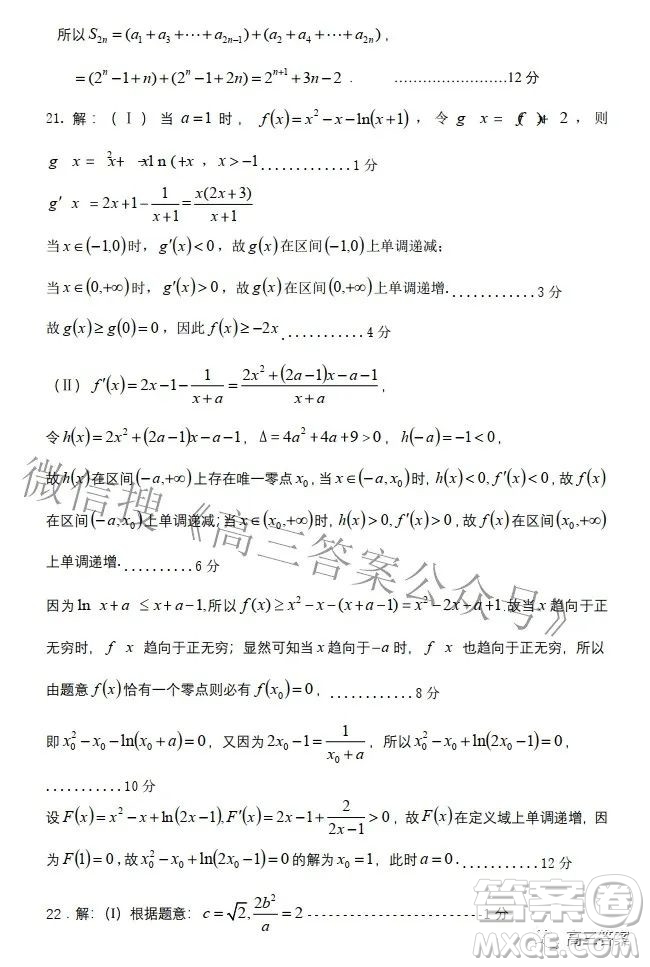 所以 S₂ₙ = (a₁ + a₃ + ⋯ + a₂ₙ₋₁) + (a₂ + a₄ + ⋯ + a₂ₙ) ,
= (2ⁿ − 1 + n) + (2ⁿ − 1 + 2n) = 2ⁿ⁺¹ + 3n − 2 . ........................12 分
21. 解：( I ) 当 a = 1 时， f(x) = x² − x − ln(x + 1) ，令 g x = f( x)+ 2 ，则
g x = x² + −xln (+x , x > −1.............1 分
g′ x = 2x + 1 − 1/(x+1) = x(2x+3)/(x+1)
当 x ∈ (−1,0) 时，g′(x) < 0，故 g(x) 在区间 (−1,0) 上单调递减；
当 x ∈ (0,+∞) 时，g′(x) > 0，故 g(x) 在区间 (0,+∞) 上单调递增............3 分
故 g(x) ≥ g(0) = 0 ，因此 f(x) ≥ −2x ............4 分
（II） f′(x) = 2x − 1 − 1/(x+a) = (2x² + (2a−1)x − a − 1)/(x+a) ,
令 h(x) = 2x² + (2a−1)x − a − 1，Δ = 4a² + 4a + 9 > 0 ， h(−a) = −1 < 0,
故 h(x) 在区间 (−a,+∞) 上存在唯一零点 x₀，当 x ∈ (−a, x₀) 时, h(x) < 0, f′(x) < 0 ，故 f(x)
在区间 (−a, x₀) 上单调递减；当 x ∈ (x₀,+∞) 时，h(x) > 0, f′(x) > 0，故 f(x) 在区间 (x₀,+∞)
上单调递增..........6 分
因为 ln x + a ≤ x + a − 1, 所以 f(x) ≥ x² − x − (x + a − 1) = x² − 2x − a + 1. 故当 x 趋向于正
无穷时， f x 趋向于正无穷；显然可知当 x 趋向于 −a 时， f x 也趋向于正无穷，所以
由题意 f(x) 恰有一个零点则必有 f(x₀) = 0， ............8 分
即 x₀² − x₀ − ln(x₀ + a) = 0 ，又因为 2x₀ − 1 = 1/(x₀+a)，所以 x₀² − x₀ + ln(2x₀ − 1) = 0 ，
...........10 分
设 F(x) = x² − x + ln(2x − 1), F′(x) = 2x − 1 + 2/(2x−1) > 0 ，故 F(x) 在定义域上单调递增，因
为 F(1) = 0 , 故 x₀² − x₀ + ln(2x₀ − 1) = 0 的解为 x₀ = 1，此时 a = 0............12 分
22．解：(I) 根据题意：c = √2, 2b²/a = 2 --------------------1 分
微信搜《高三答案公众号》
答案圈
高三答案
MXQE.COM